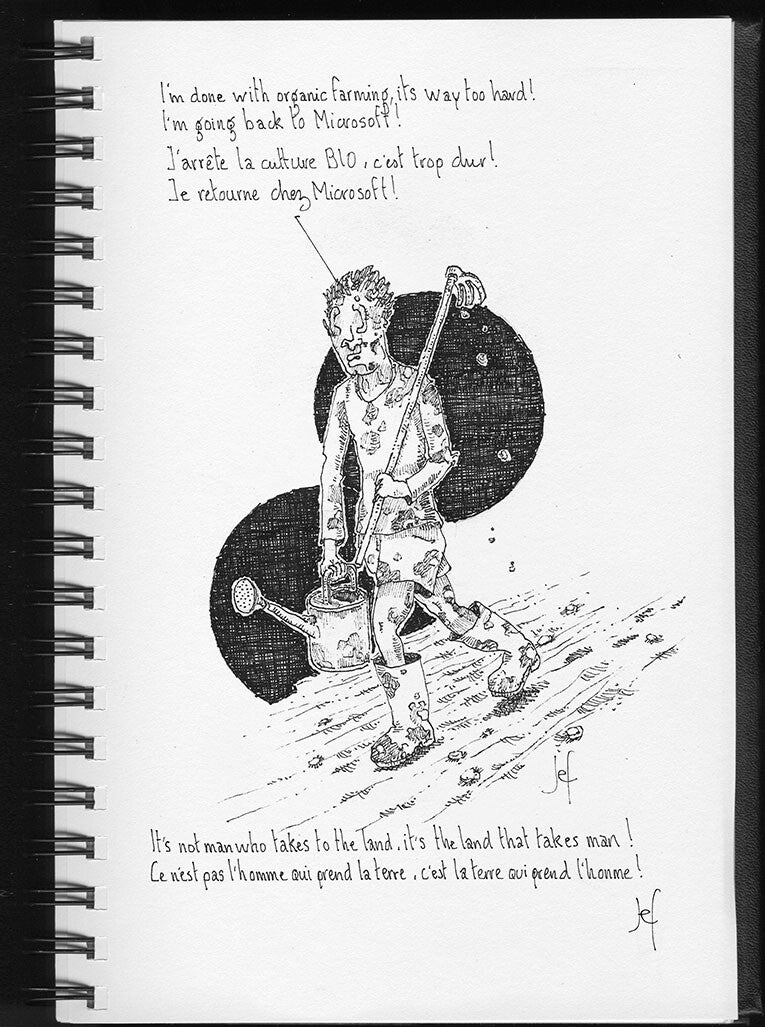 I'm done with organic farming, it's way too hard!
I'm going back to Microsoft!
J'arrête la culture BIO, c'est trop dur!
Je retourne chez Microsoft!
Jef
It's not man who takes to the land, it's the land that takes man!
Ce n'est pas l'homme qui prend la terre, c'est la terre qui prend l'homme!
Jef